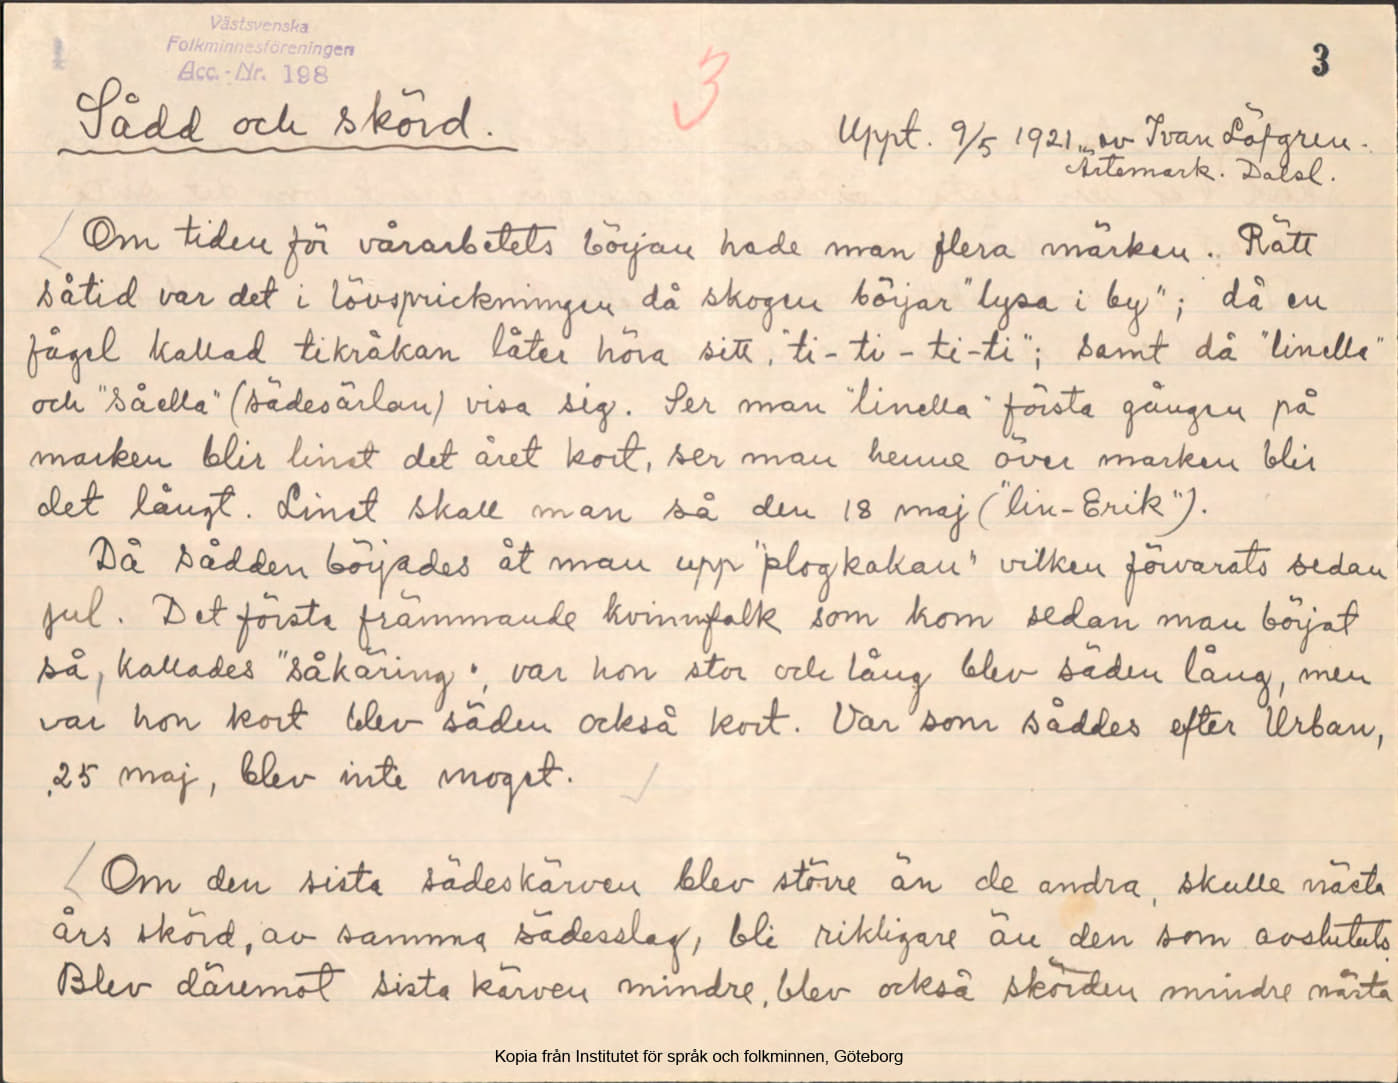 Västsvenska
Folkminnesföreningen
Acc.-Nr. 198
3
3
Sådd och skörd.
Uppt. 9/5 1921 av Ivan Löfgren.
Ärtemark. Dalsl.
Om tiden för vårarbetets början hade man flera märken. Rätt
såtid var det i lövsprickningen då skogen börjar "lysa i by"; då en
fågel kallad tikråkan låter höra sitt "ti-ti-ti-ti"; samt då "linella"
och "såella" (sädesärlan) visa sig. Ser man "linella" första gången på
marken blir linet det året kort, ser man henne över marken blir
det långt. Linet skall man så den 18 maj ("lin-Erik").
Då sådden börjades åt man upp "plogkakan" vilken förvarats sedan
jul. Det första främmande kvinnfolk som kom sedan man börjat
så, kallades "såkäring", var hon stor och lång blev säden lång, men
var hon kort blev säden också kort. Var som såddes efter Urban,
25 maj, blev inte moget.
Om den sista sädeskärven blev större än de andra, skulle nästa
års skörd, av samma sädesslag, bli rikligare än den som avslutats.
Blev däremot sista kärven mindre, blev också skörden mindre nästa
Kopia från Institutet för språk och folkminnen, Göteborg